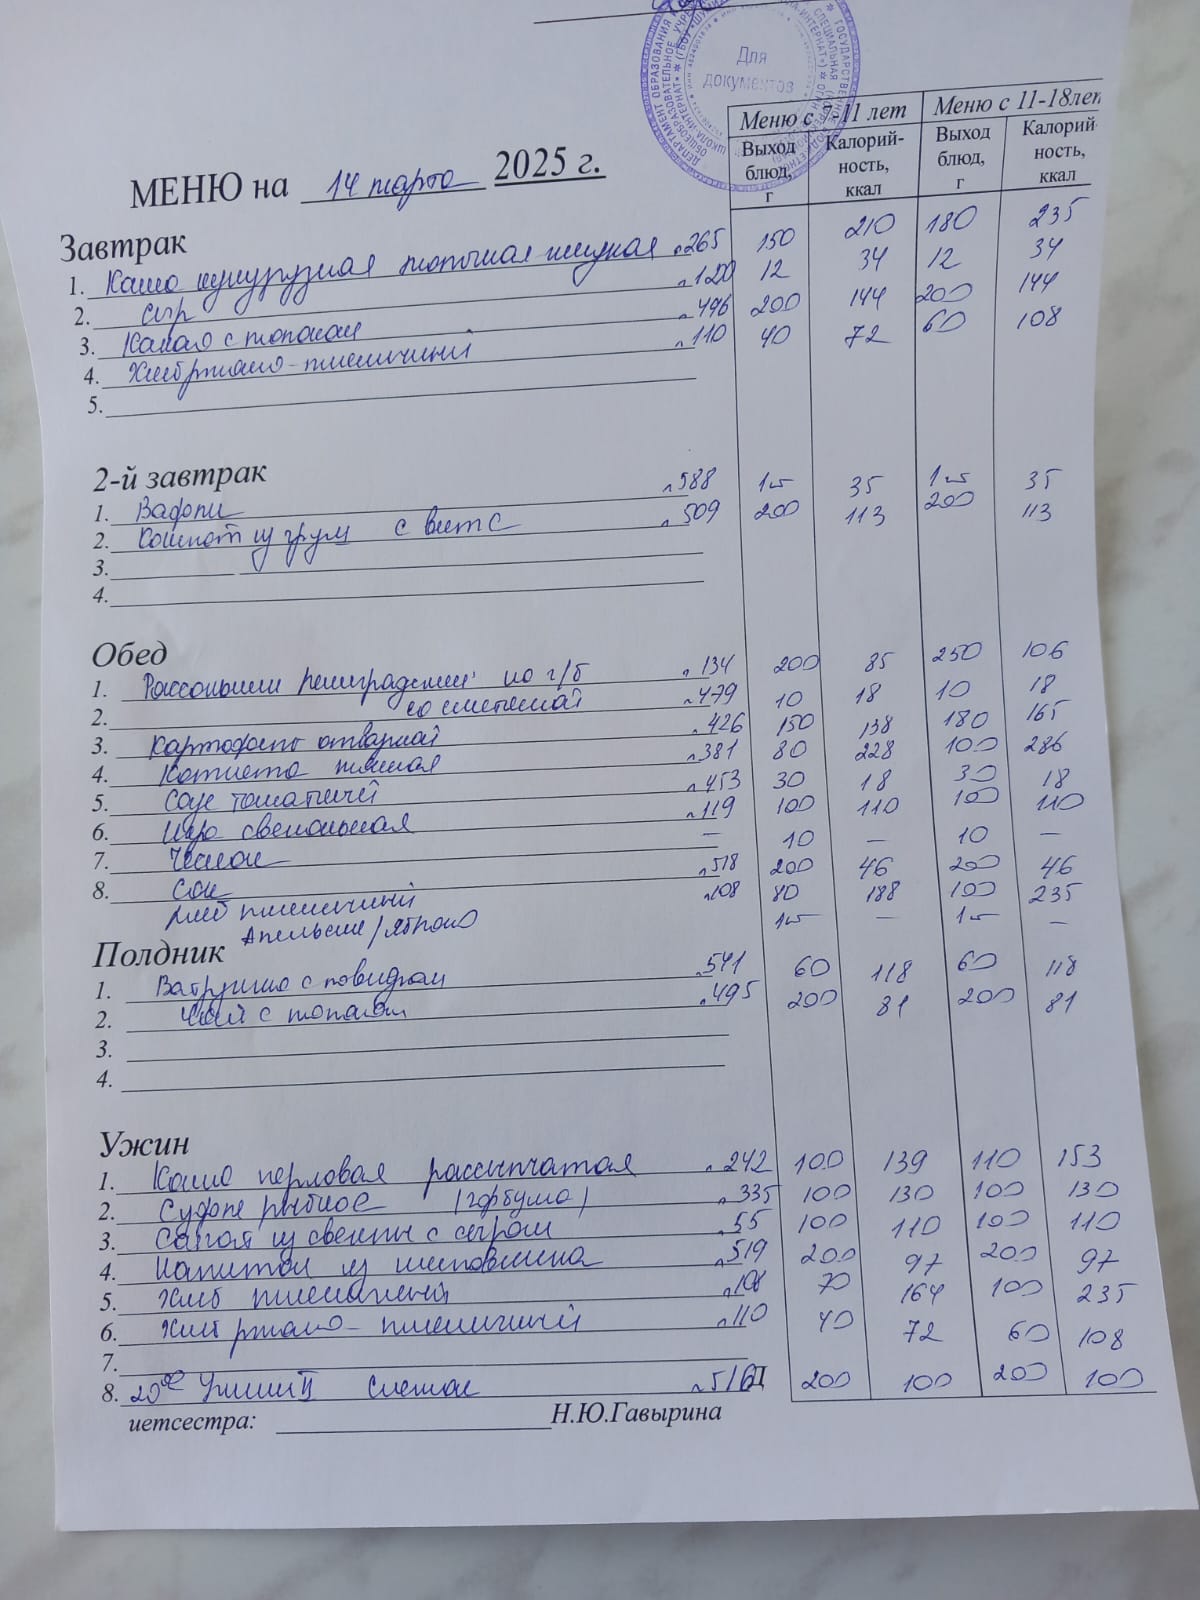 Для
документов
Меню с 7-11 лет Меню с 11-18лет
Выход блюд, г Калорий-ность, ккал Выход блюд, г Калорий-ность, ккал
МЕНЮ на 14 марта 2025 г.
Завтрак
1. Каша кукурузная молочная жидкая л.265 150 210 180 235
2. Сыр л.120 12 34 12 34
3. Какао с молоком л.496 200 144 200 144
4. Хлеб ржано-пшеничный л.110 40 72 60 108
5.
2-й завтрак
1. Вафли л.588 1ш 35 1ш 35
2. Компот из груш с вит С л.509 200 113 200 113
3.
4.
Обед
1. Рассольник Ленинградский на г/б л.134 200 85 250 106
2. со сметаной л.479 10 18 10 18
3. Картофель отварной л.426 150 138 180 165
4. Котлета мясная л.381 80 228 100 286
5. Соус томатный л.453 30 18 30 18
6. Икра свекольная л.119 100 110 100 110
7. Чеснок — 10 — 10 —
8. Сок л.518 200 46 200 46
Хлеб пшеничный л.108 80 188 100 235
Апельсин/яблоко 1ш — 1ш —
Полдник
1. Ватрушка с повидлом л.541 60 118 60 118
2. Чай с молоком л.495 200 81 200 81
3.
4.
Ужин
1. Каша перловая рассыпчатая л.242 100 139 110 153
2. Суфле рыбное (горбуша) л.335 100 130 100 130
3. Салат из свеклы с сыром л.55 100 110 100 110
4. Напиток из шиповника л.519 200 97 200 97
5. Хлеб пшеничный л.108 70 164 100 235
6. Хлеб ржано-пшеничный л.110 40 72 60 108
7.
8. 20⁰⁰ Ужин II Снежок л.516 200 100 200 100
иетсестра: Н.Ю.Гавырина